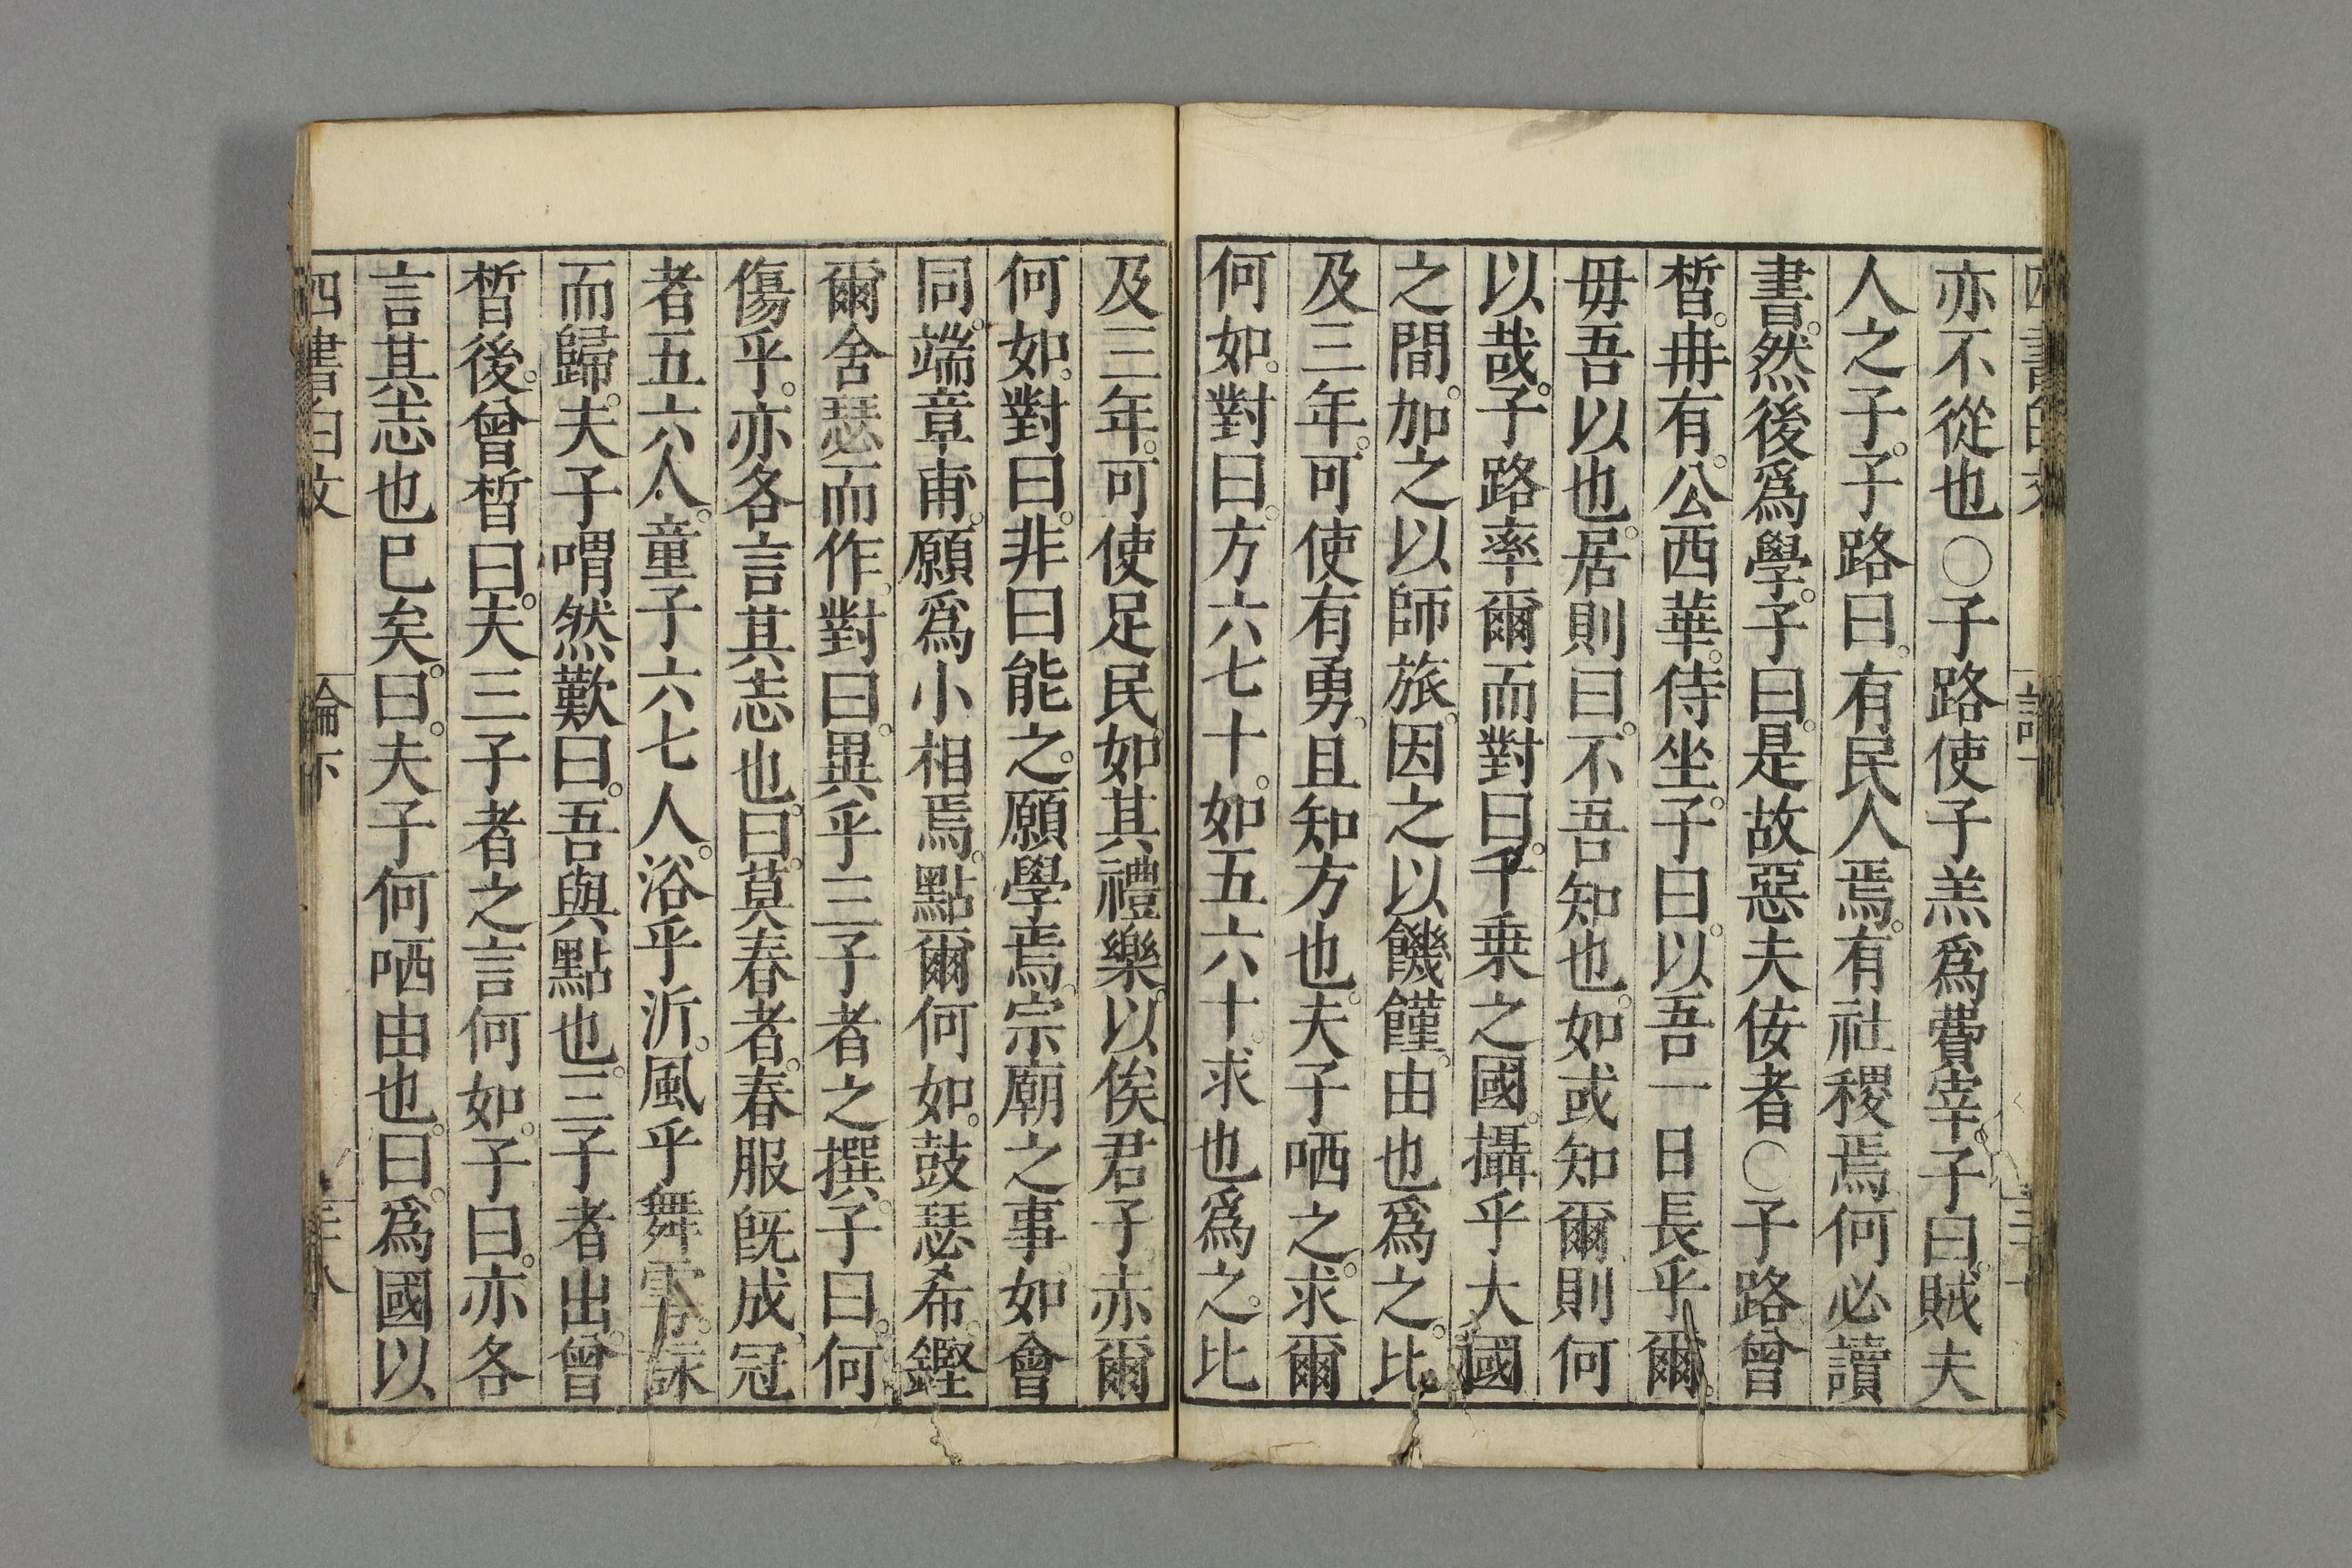 亦不從也○子路使子羔爲費宰。子曰。賊夫
人之子。子路曰。有民人焉。有社稷焉何必讀
書。然後爲學。子曰。是故惡夫佞者○子路曾
晳。冉有。公西華。侍坐。子曰。以吾一日長乎爾。
毋吾以也。居則曰。不吾知也。如或知爾則何
以哉。子路率爾而對曰。千乗之國。攝乎大國
之間。加之以師旅。因之以饑饉。由也爲之。比
及三年。可使有勇。且知方也。夫子哂之。求爾
何如。對曰。方六七十。如五六十。求也爲之。比
及三年。可使足民如其禮樂。以俟君子赤爾
何如。對曰。非曰能之。願學焉。宗廟之事如會
同。端章甫。願爲小相焉。點爾何如。鼓瑟希。鏗
爾舍瑟而作。對曰。異乎三子者之撰。子曰。何
傷乎。亦各言其志也。曰。莫春者。春服既成。冠
者五六人。童子六七人。浴乎沂。風乎舞雩。詠
而歸。夫子喟然歎曰。吾與點也。三子者出。曾
晳後。曾晳曰。夫三子者之言何如。子曰。亦各
言其志也巳矣。曰。夫子何哂由也。曰。爲國以
四書白文 論下 三十八